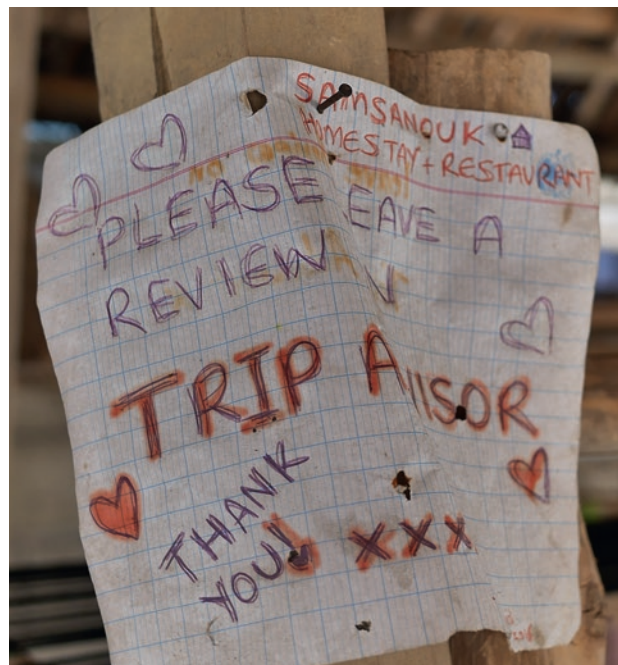 SAMSANOUK
HOMESTAY + RESTAURANT
PLEASE EAVE A
REVIEW
TRIP A
ISOR
THANK
YOU! XXX